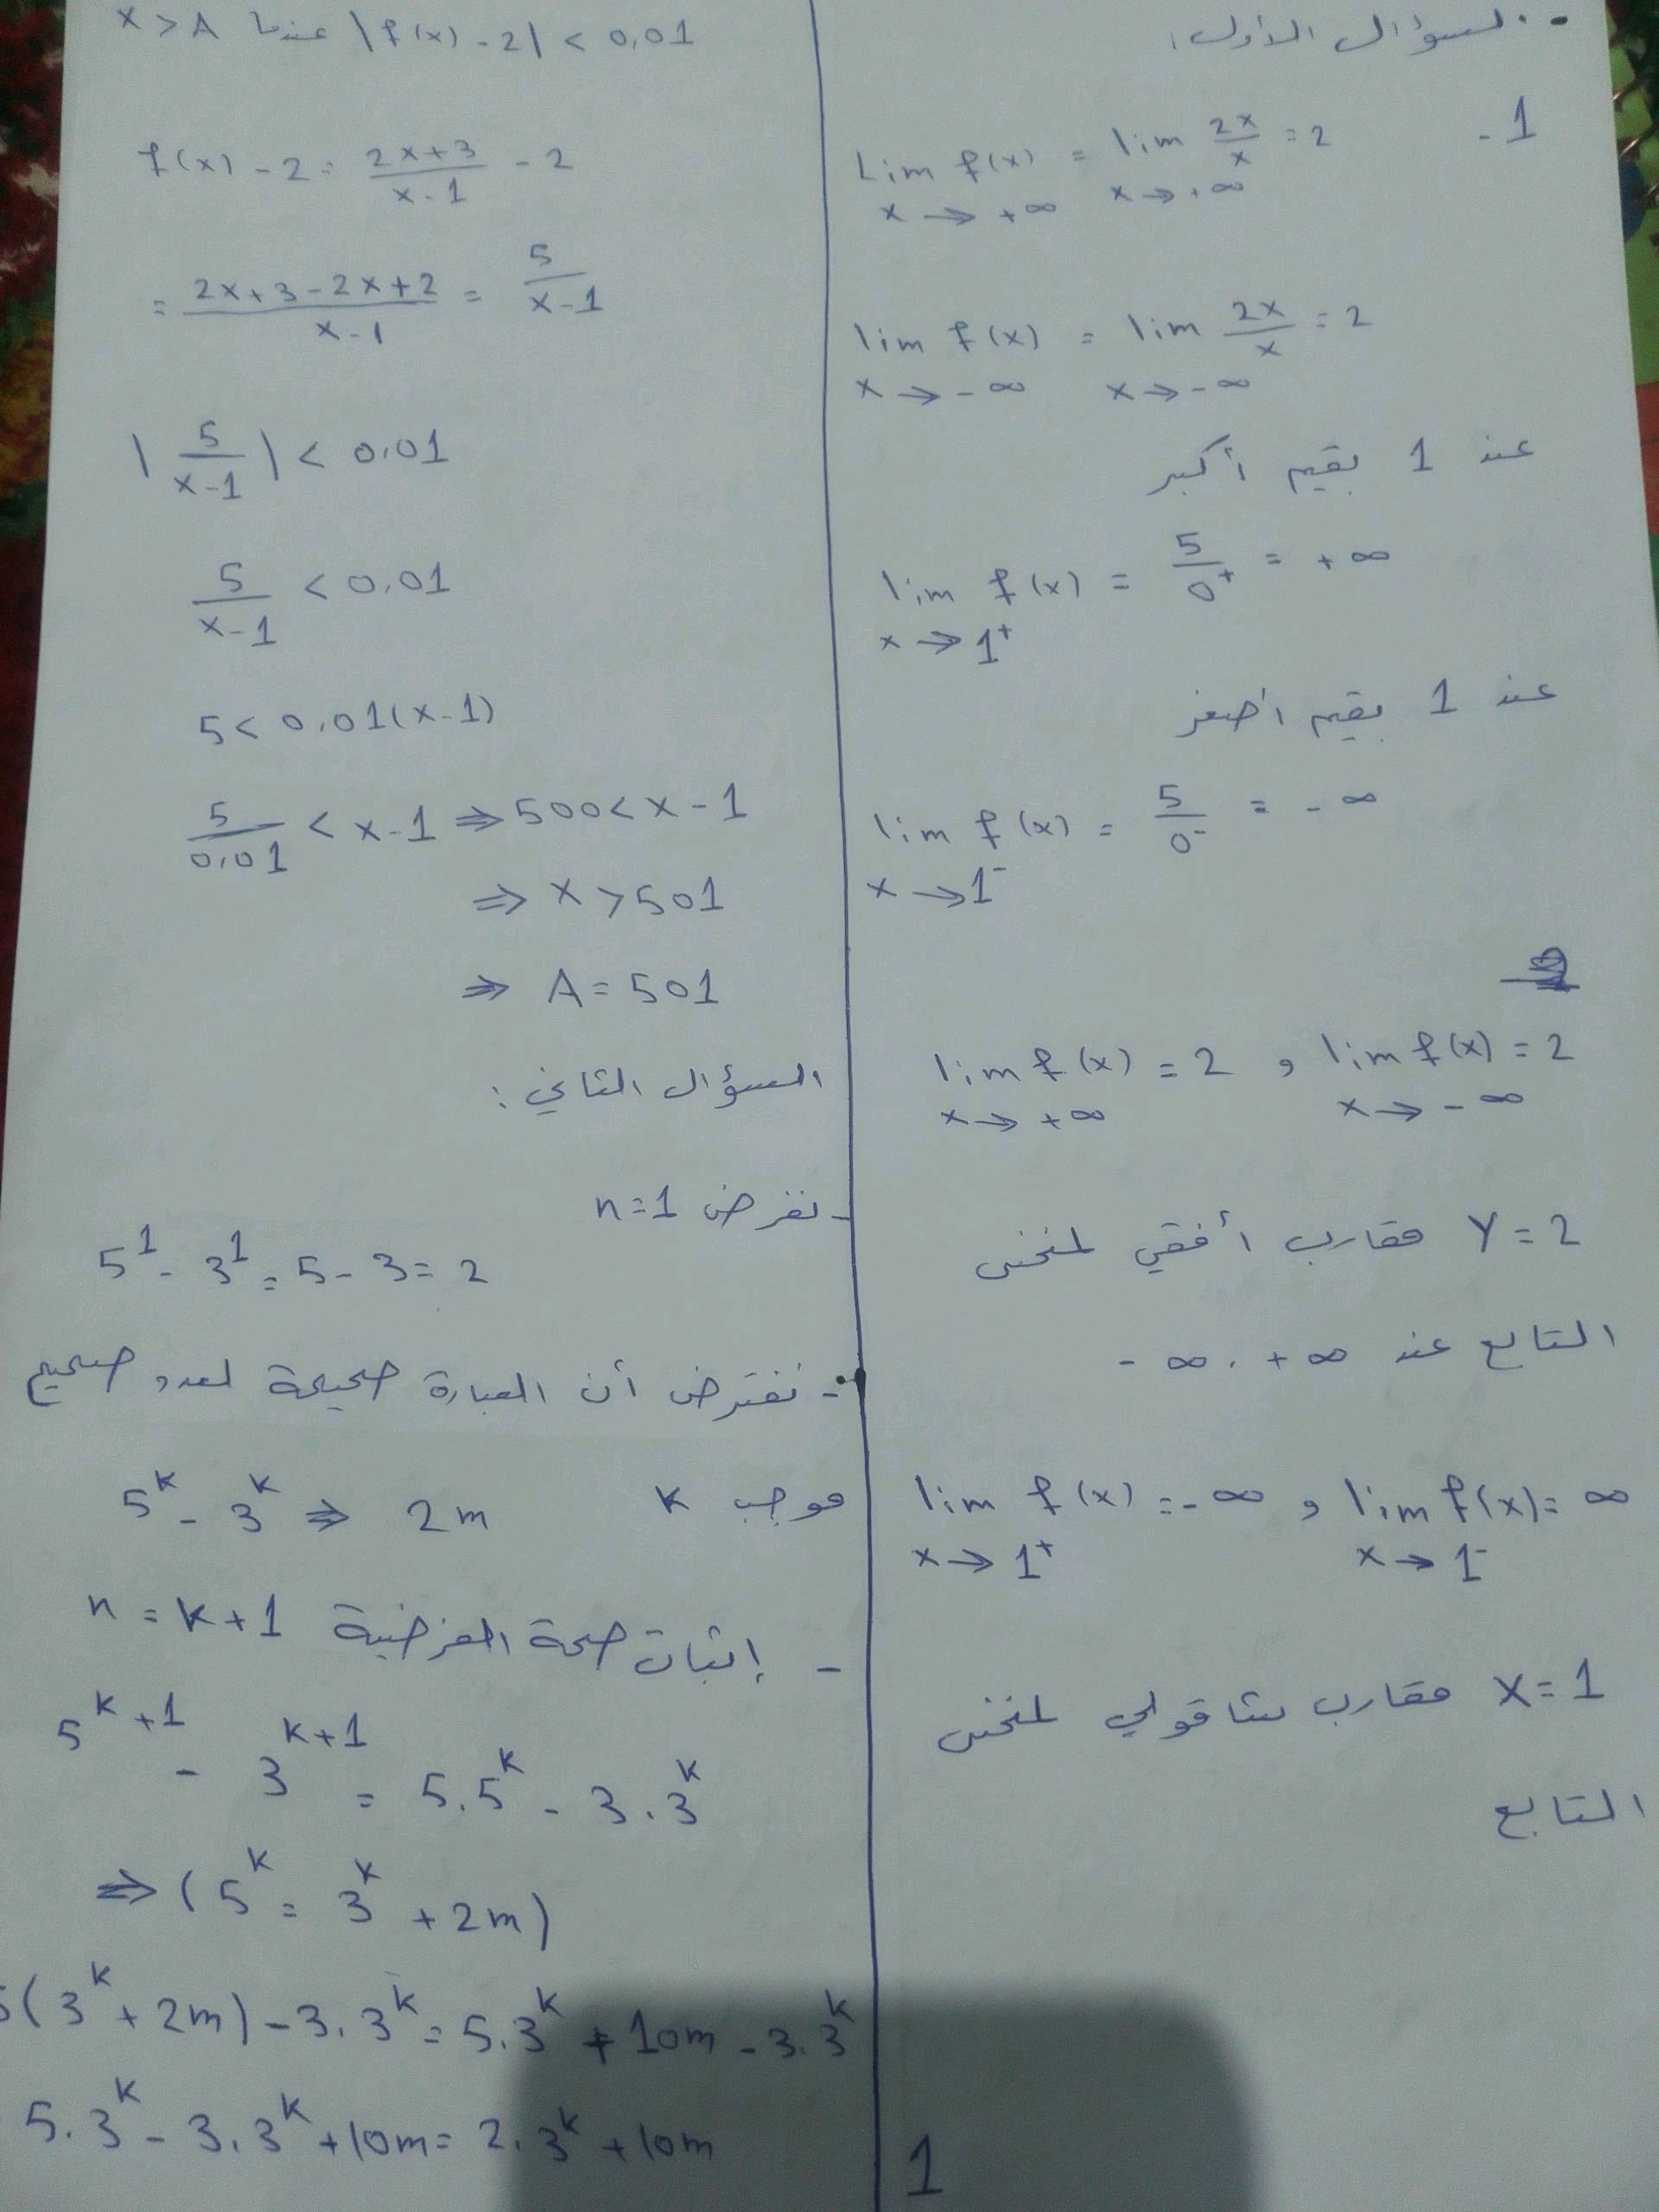 - السؤال الأول:
1 -
Lim f(x) = lim 2x/x = 2
x → +∞ x → +∞
lim f(x) = lim 2x/x = 2
x → -∞ x → -∞
عند 1 بقيم أكبر
lim f(x) = 5/0⁺ = +∞
x → 1⁺
عند 1 بقيم اصغر
lim f(x) = 5/0⁻ = -∞
x → 1⁻
2
lim f(x) = 2 و lim f(x) = 2
x → +∞ x → -∞
y = 2 مقارب أفقي لمنحني
التابع عند +∞ . -∞
lim f(x) = -∞ و lim f(x) = ∞
x → 1⁺ x → 1⁻
x = 1 مقارب شاقولي لمنحني
التابع
1
x > A عندما |f(x) - 2| < 0,01
f(x) - 2 = (2x+3)/(x-1) - 2
= (2x+3-2x+2)/(x-1) = 5/(x-1)
|5/(x-1)| < 0,01
5/(x-1) < 0,01
5 < 0,01(x-1)
5/0,01 < x-1 ⇒ 500 < x-1
⇒ x > 501
⇒ A = 501
السؤال الثاني:
- نفرض n=1
5¹ - 3¹ = 5 - 3 = 2
- نفترض أن العبارة صحيحة لعدد صحيح
موجب k 5ᵏ - 3ᵏ ⇒ 2m
- إثبات صحة الفرضية n = k+1
5ᵏ⁺¹ - 3ᵏ⁺¹ = 5.5ᵏ - 3.3ᵏ
⇒ (5ᵏ = 3ᵏ + 2m)
5(3ᵏ + 2m) - 3.3ᵏ = 5.3ᵏ + 10m - 3.3ᵏ
5.3ᵏ - 3.3ᵏ + 10m = 2.3ᵏ + 10m